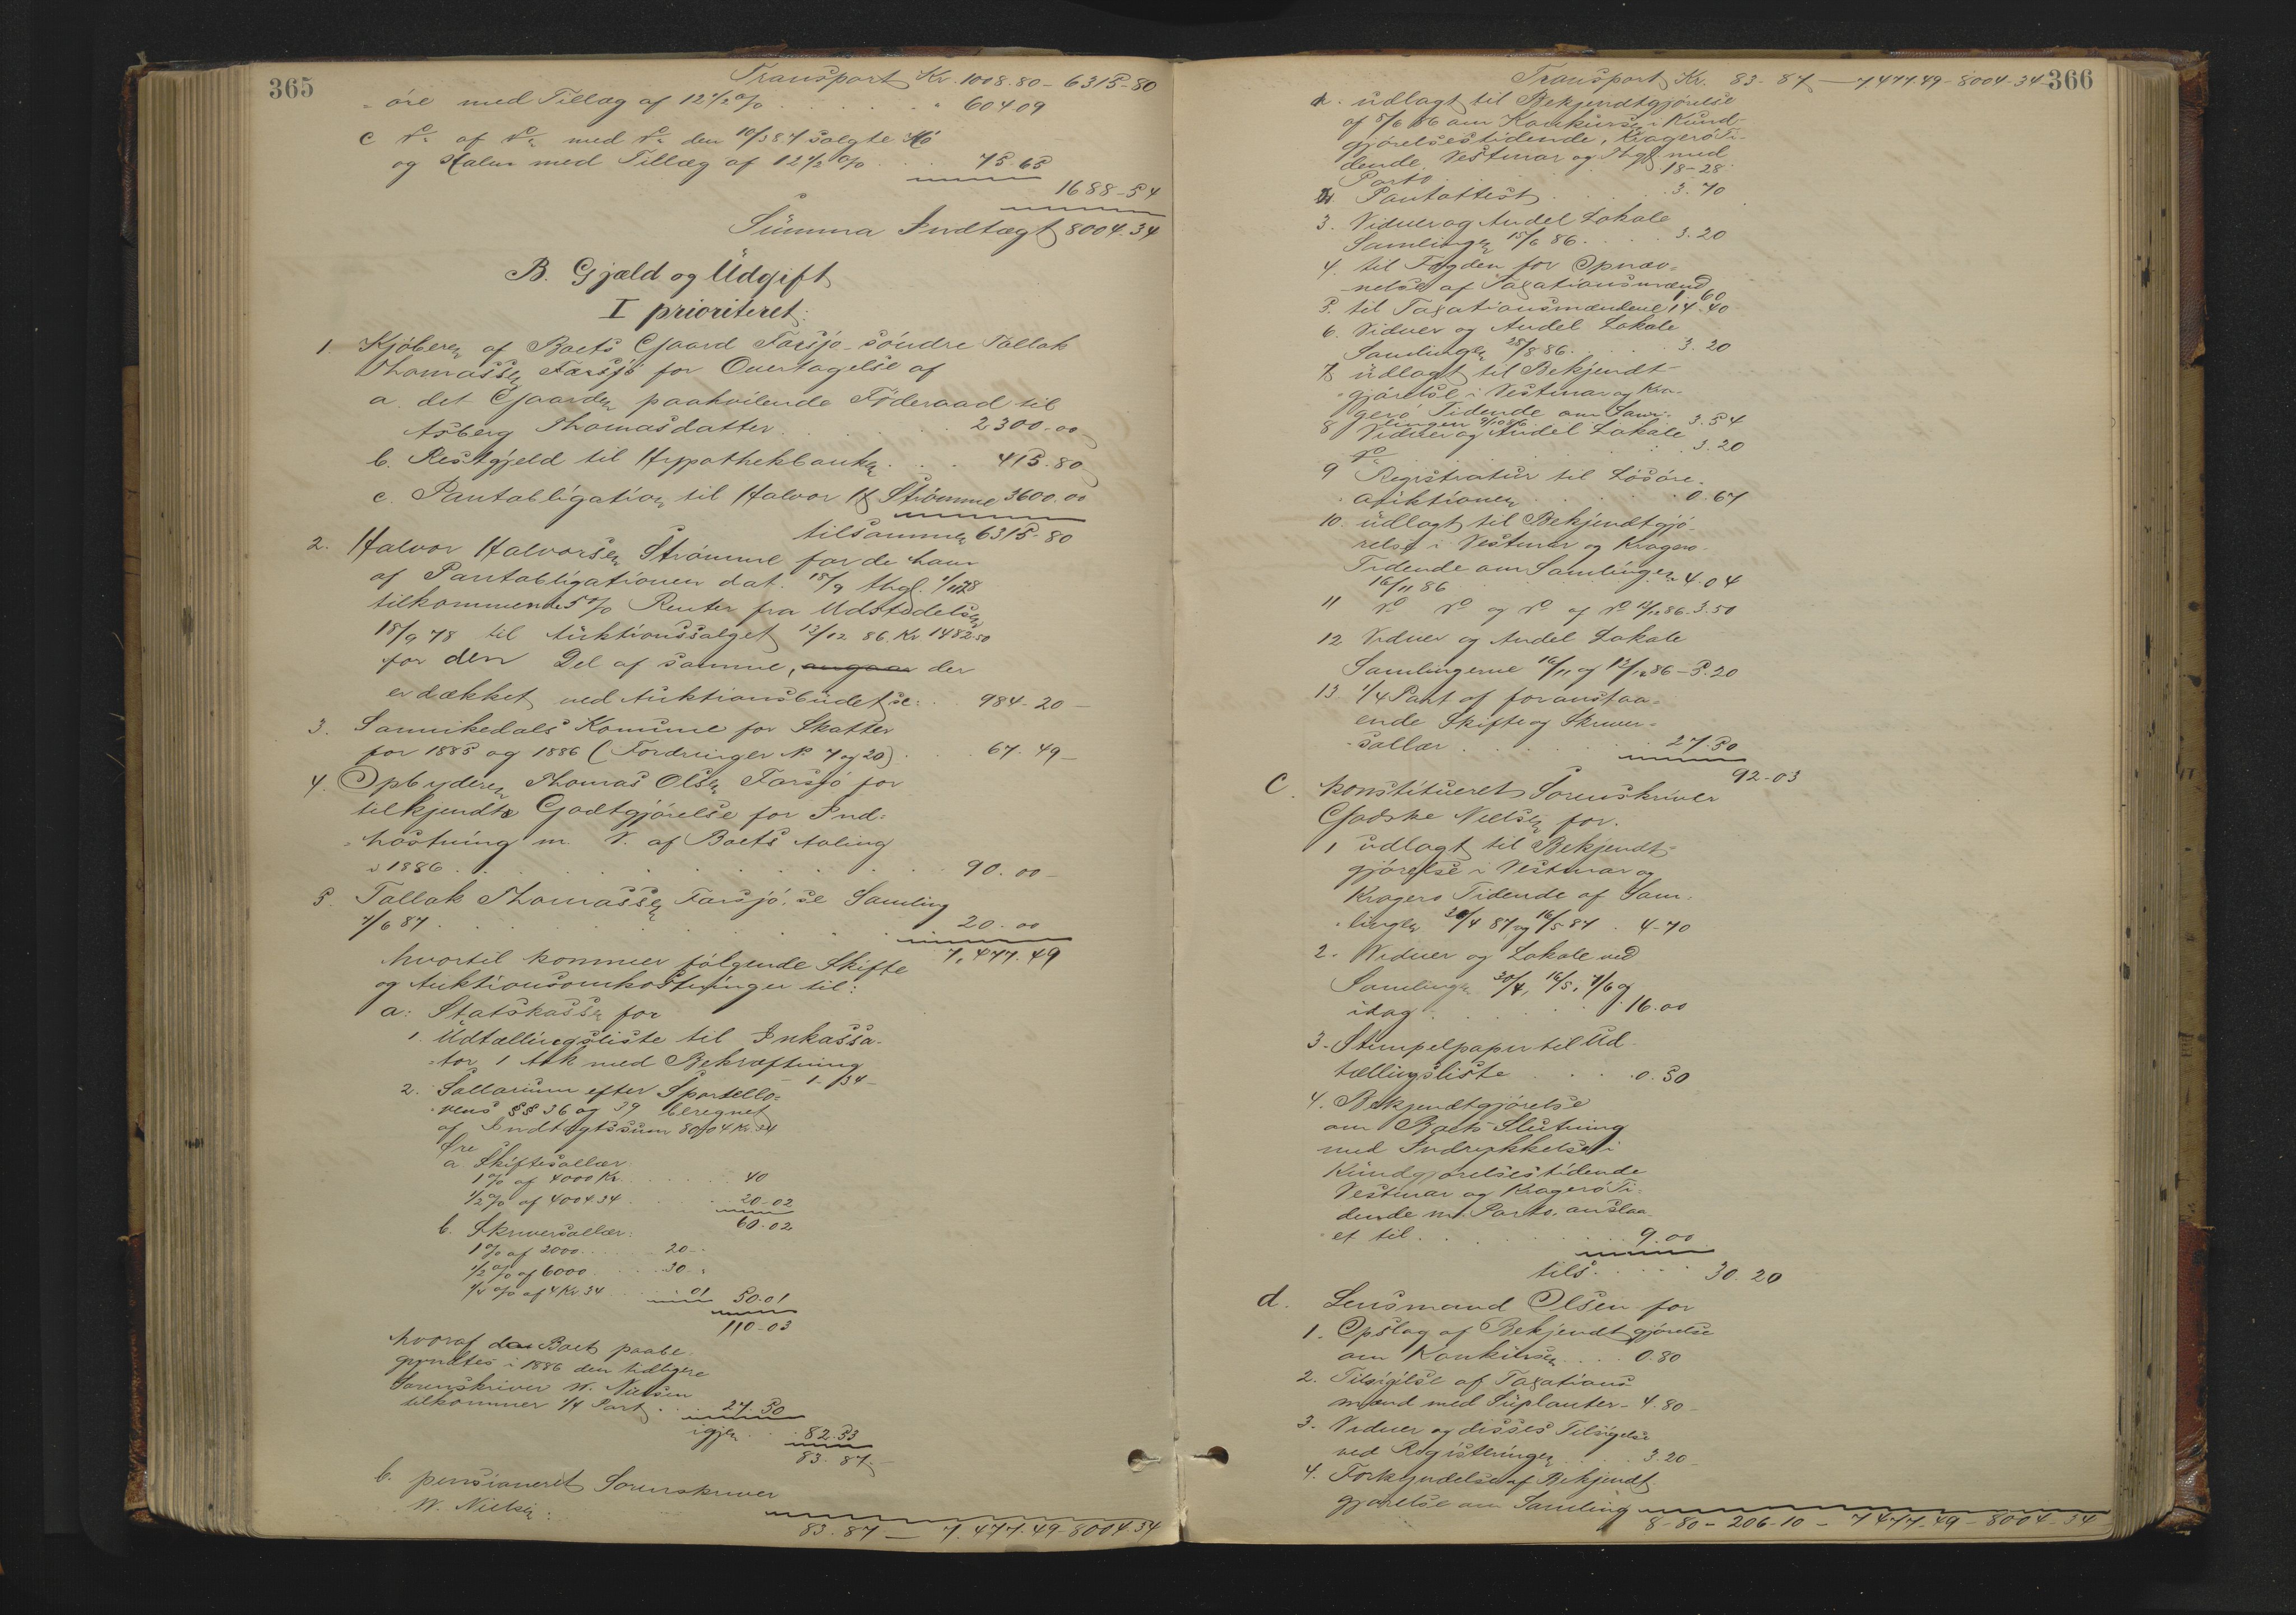 365
Transport Kr. 1008.80 - 6315-80
øre med Tillæg af 12½ % . . . . . . . " 604 09
c do af do med do den 10/3 87 solgte Hø
og Halm med Tillæg af 12½ % . . . 75.65
1688-54
Summa Indtægt 8004.34
B. Gjæld og Udgift
I prioriteret:
1. Kjøberen af Boets Gaard Farsjø søndre Tallak
Thomassen Farsjø for Overtagelse af
a. det Gaarden paahvilende Føderaad til
Asberg Thomasdatter . . . . . 2300.00
b. Restgjeld til Hypothekbanken . . . 415.80
c. Pantobligation til Halvor H Strømme 3600.00
tilsammen 6315-80
2. Halvor Halvorsen Strømme for de ham
af Pantobligationen dat. 18/9 thgl. 1/11 78
tilkommende 5 % Renter fra Udstedelsen
18/9 78 til Auktionssalget 12/12 86 Kr. 1482.50
for den Del af samme, angaar der
er dækket ved Auktionsbudet se: . . 984-20 -
3. Sannikedals Komune for Skatter
for 1885 og 1886 (Fordringer No 7 og 20) . . 67.49 -
4. Opbyderen Thomas Olsen Farsjø for
tilkjendte Godtgjørelse for Ind=
høstning m. V. af Boets Avling
i 1886 . . . . . . . . 90.00 -
5. Tallak Thomassen Farsjø, se Samling
7/6 87 . . . . . . . . 20.00
7,477.49
hvortil kommer følgende Skifte
og Auktionsomkostninger til:
a: Statskassen for
1. Udtællingsliste til Inkassa-
tor 1 Ark med Bekræftning
1-34 -
2. Sallarium efter Sportello=
vens §§ 36 og 39 beregnet
af Indtægtssum 8004 Kr. 34
Øre
a. Skiftesallær
1 % af 4000 Kr. . . . . 40
½ % af 4004.34 . . . . 20-02
60.02
b. Skriversallær:
1 % af 2000 . . . . 20 -
½ % af 6000 . . . . 30 "
¼ % af 4 Kr 34 . . . 01 50.01
110-03
hvoraf da Boet paabe-
gyndtes i 1886 den tidligere
Sorenskriver W. Nielsen
tilkommer ¼ Part . . 27.50
igjen . . 82.53
83.87 -
b. pensioneret Sorenskriver
W. Nielsen:
83.87 — 7,477.49-8004.34
366
Transport Kr. 83-87 — 7,477.49-8004-34
1. udlagt til Bekjendtgjørelse
af 8/6 86 om Konkursen i Kund-
gjørelsestidende, Kragerø Ti-
dende, Vestmar og Thgl med
Porto . . . 18-28
2. Pantattest . . . . 3.70
3. Vidner og Andel Lokale
Samlingen 15/6 86 . . . . 3.20
4. til Fogden for Opnæv=
nelse af Taxationsmænd 1.60
5. til Taxationsmændene 14.40
6. Vidner og Andel Lokale
Samlingen 28/8 86 . . . . 3.20
7. udlagt til Bekjendt-
gjørelse i Vestmar og Kra-
gerø Tidende om Sam-
lingen . . 3.54
8 Vidner og Andel Lokale
do . . . 3.20
9 Registratur til Løsøre-
auktionen . . . . . 0.67
10. udlagt til Bekjendtgjø-
relse i Vestmar og Kragerø
Tidende om Samlingen 4.04
16/11 86
11 do do og do af do 12/12 86. 3.50
12 Vidner og Andel Lokale
Samlingerne 16/11 og 12/12 86 - 5.20
13 ¼ Part af foranstaa=
ende Skifte og Skriver=
sallær . . . . . . 27.50
92-03
C. konstitueret Sorenskriver
Godske Nielsen for.
1 udlagt til Bekjendt=
gjørelse i Vestmar og
Kragerø Tidende af Sam-
lingen 20/4 87 og 16/5 87 . 4-70
2. Vidner og Lokale ved
Samlingen 20/4, 16/5, 7/6 og
idag . . . . . . 16.00
3. Stempelpapir til Ud-
tællingsliste . . . . 0.50
4. Bekjendtgjørelse
om Boets Slutning
med Indrykkelse i
Kundgjørelsestidende
Vestmar og Kragerø Ti-
dende m. Porto, anslaa-
et til . . . . . . 9.00
tils . . . . . 30.20
d. Lensmand Olsen for
1. Opslag af Bekjendtgjørelse
om Konkursen . . . . 0.80
2. Tilsigelse af Taxations-
mænd med Suplanter - 4.80 -
3. Vidner og disses Tilsigelse
ved Registreringen . . . . 3.20 -
4. Forkyndelse af Bekjendt-
gjørelse om Samling
8-80 - 206-10 - 7477.49 - 8004-34